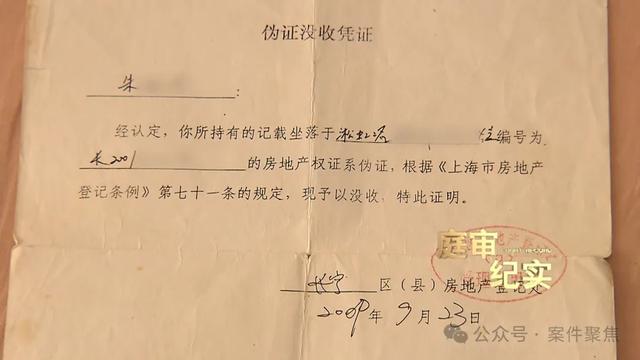 伪证没收凭证
朱 :
经认定，你所持有的记载坐落于淞虹路 编号为
长2001 的房地产权证系伪证，根据《上海市房地产
登记条例》第七十一条的规定，现予以没收，特此证明。
庭审
纪实
长宁 区（县）房地产登记处
2009年9月23日
公众号·案件聚焦